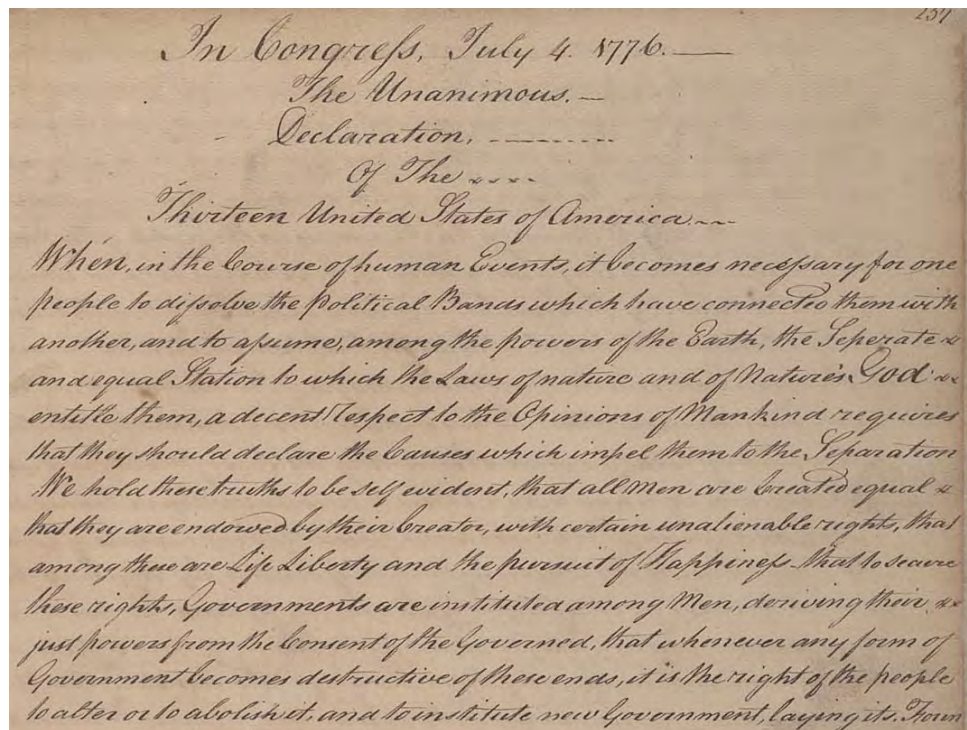 157
In Congress, July 4. 1776. —
The Unanimous. —
Declaration, - - - - - - - -
Of The ....
Thirteen United States of America. ~~
When, in the Course of human Events, it becomes necessary for one
people to dissolve the Political Bands which have connected them with
another, and to assume, among the powers of the Earth, the Seperate
and equal Station to which the Laws of nature and of Nature's God
entitle them, a decent respect to the Opinions of Mankind requires
that they should declare the Causes which impel them to the Separation
We hold these truths to be self evident, that all Men are Created equal
that they are endowed by their Creator, with certain unalienable rights, that
among these are Life Liberty and the pursuit of Happiness - that to secure
these rights, Governments are instituted among Men, deriving their
just powers from the Consent of the Governed, that whenever any form of
Government becomes destructive of these ends, it is the right of the people
to alter or to abolish it, and to institute new Government, laying its. Foun